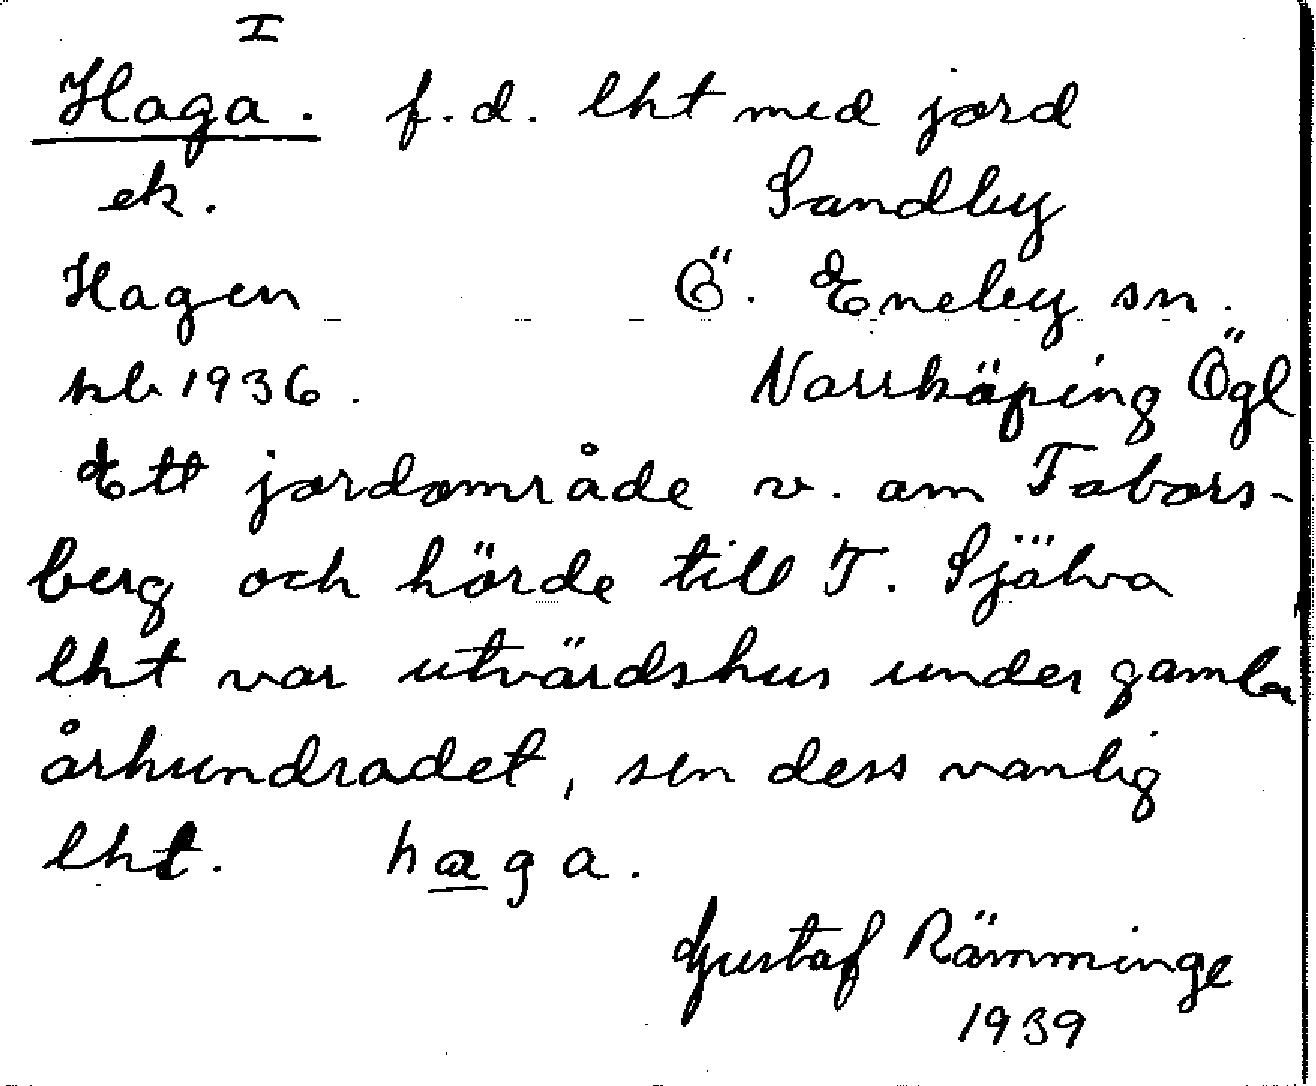 I
Haga. f.d. lht med jord
ek. Sandby
Hagen Ö. Eneby sn.
kb 1936. Norrköping Ögl
Ett jordområde v. om Tabors-
berg och hörde till T. Själva
lht var utvärdshus under gamla
århundradet, sen dess vanlig
lht. haga.
Gustaf Rämminge
1939